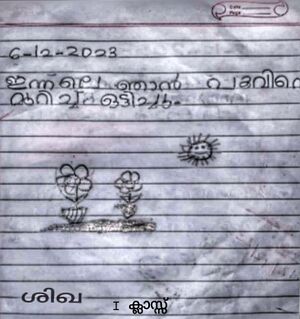 Date
Page
6-12-2023
ഇന്നലെ ഞാൻ പൂവിനെ
മുറിച്ച് ഒട്ടിച്ചു.
ശിഖ
I ക്ലാസ്സ്